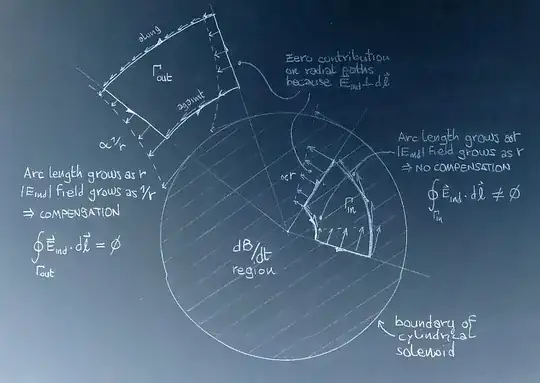 along
Γout
against
α 1/r
Zero contribution
on radial paths
because E⃗ind ⊥ dl⃗
Arc length grows as r
|Eind| field grows as 1/r
⇒ COMPENSATION
∮ E⃗ind · dl⃗ = Ø
Γout
Arc length grows as r
|Eind| field grows as r
⇒ NO COMPENSATION
∮ E⃗ind · dl⃗ ≠ Ø
Γin
αr
Γin
dB/dt
region
boundary of
cylindrical
solenoid